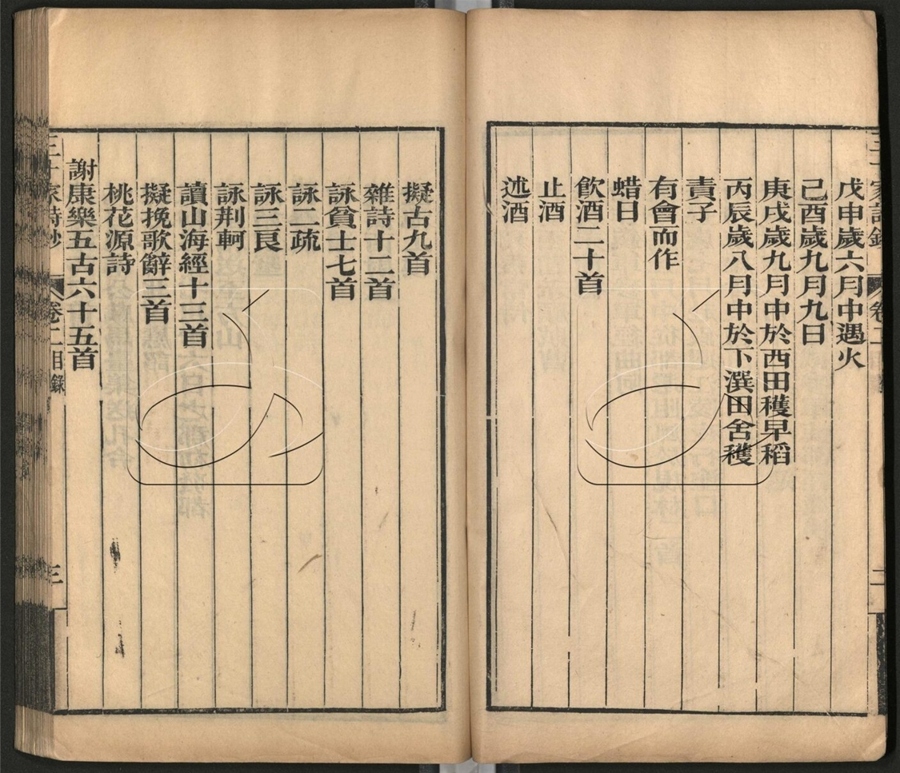 戊申歲六月中遇火
己酉歲九月九日
庚戌歲九月中於西田穫早稻
丙辰歲八月中於下潠田舍穫
責子
有會而作
蜡日
飲酒二十首
止酒
述酒
擬古九首
雜詩十二首
詠貧士七首
詠二疏
詠三良
詠荆軻
讀山海經十三首
擬挽歌辭三首
桃花源詩
謝康樂五古六十五首
卷二目錄
三